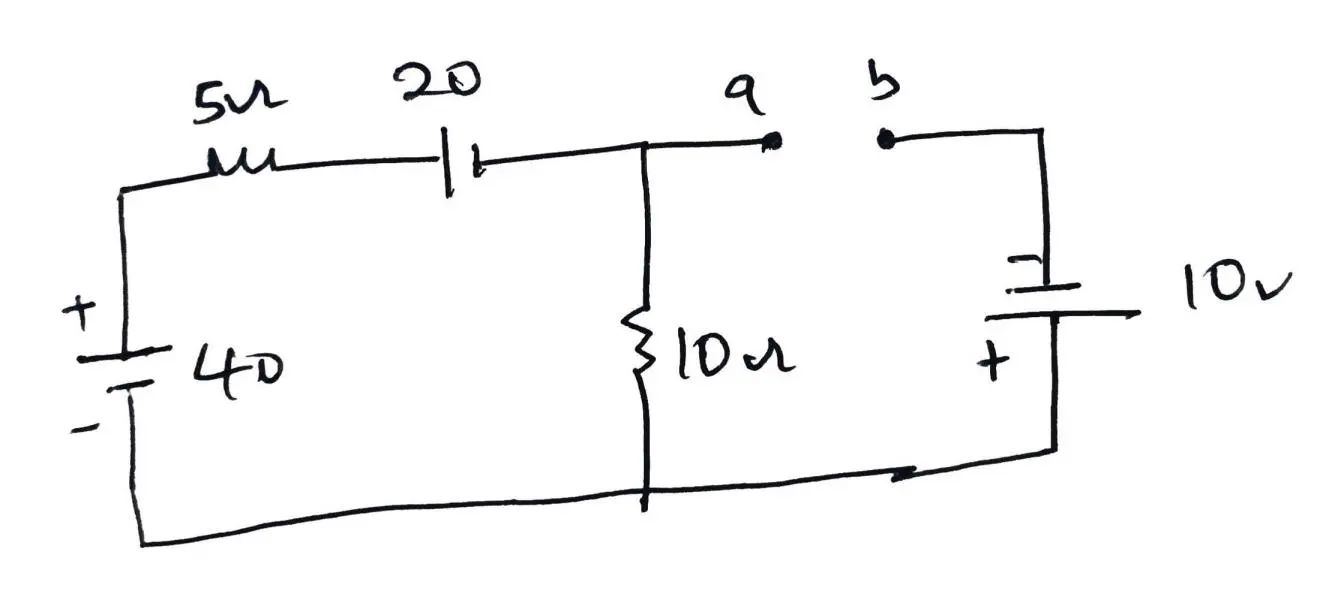 5Ω
20
a
b
+
40
-
10Ω
-
10v
+